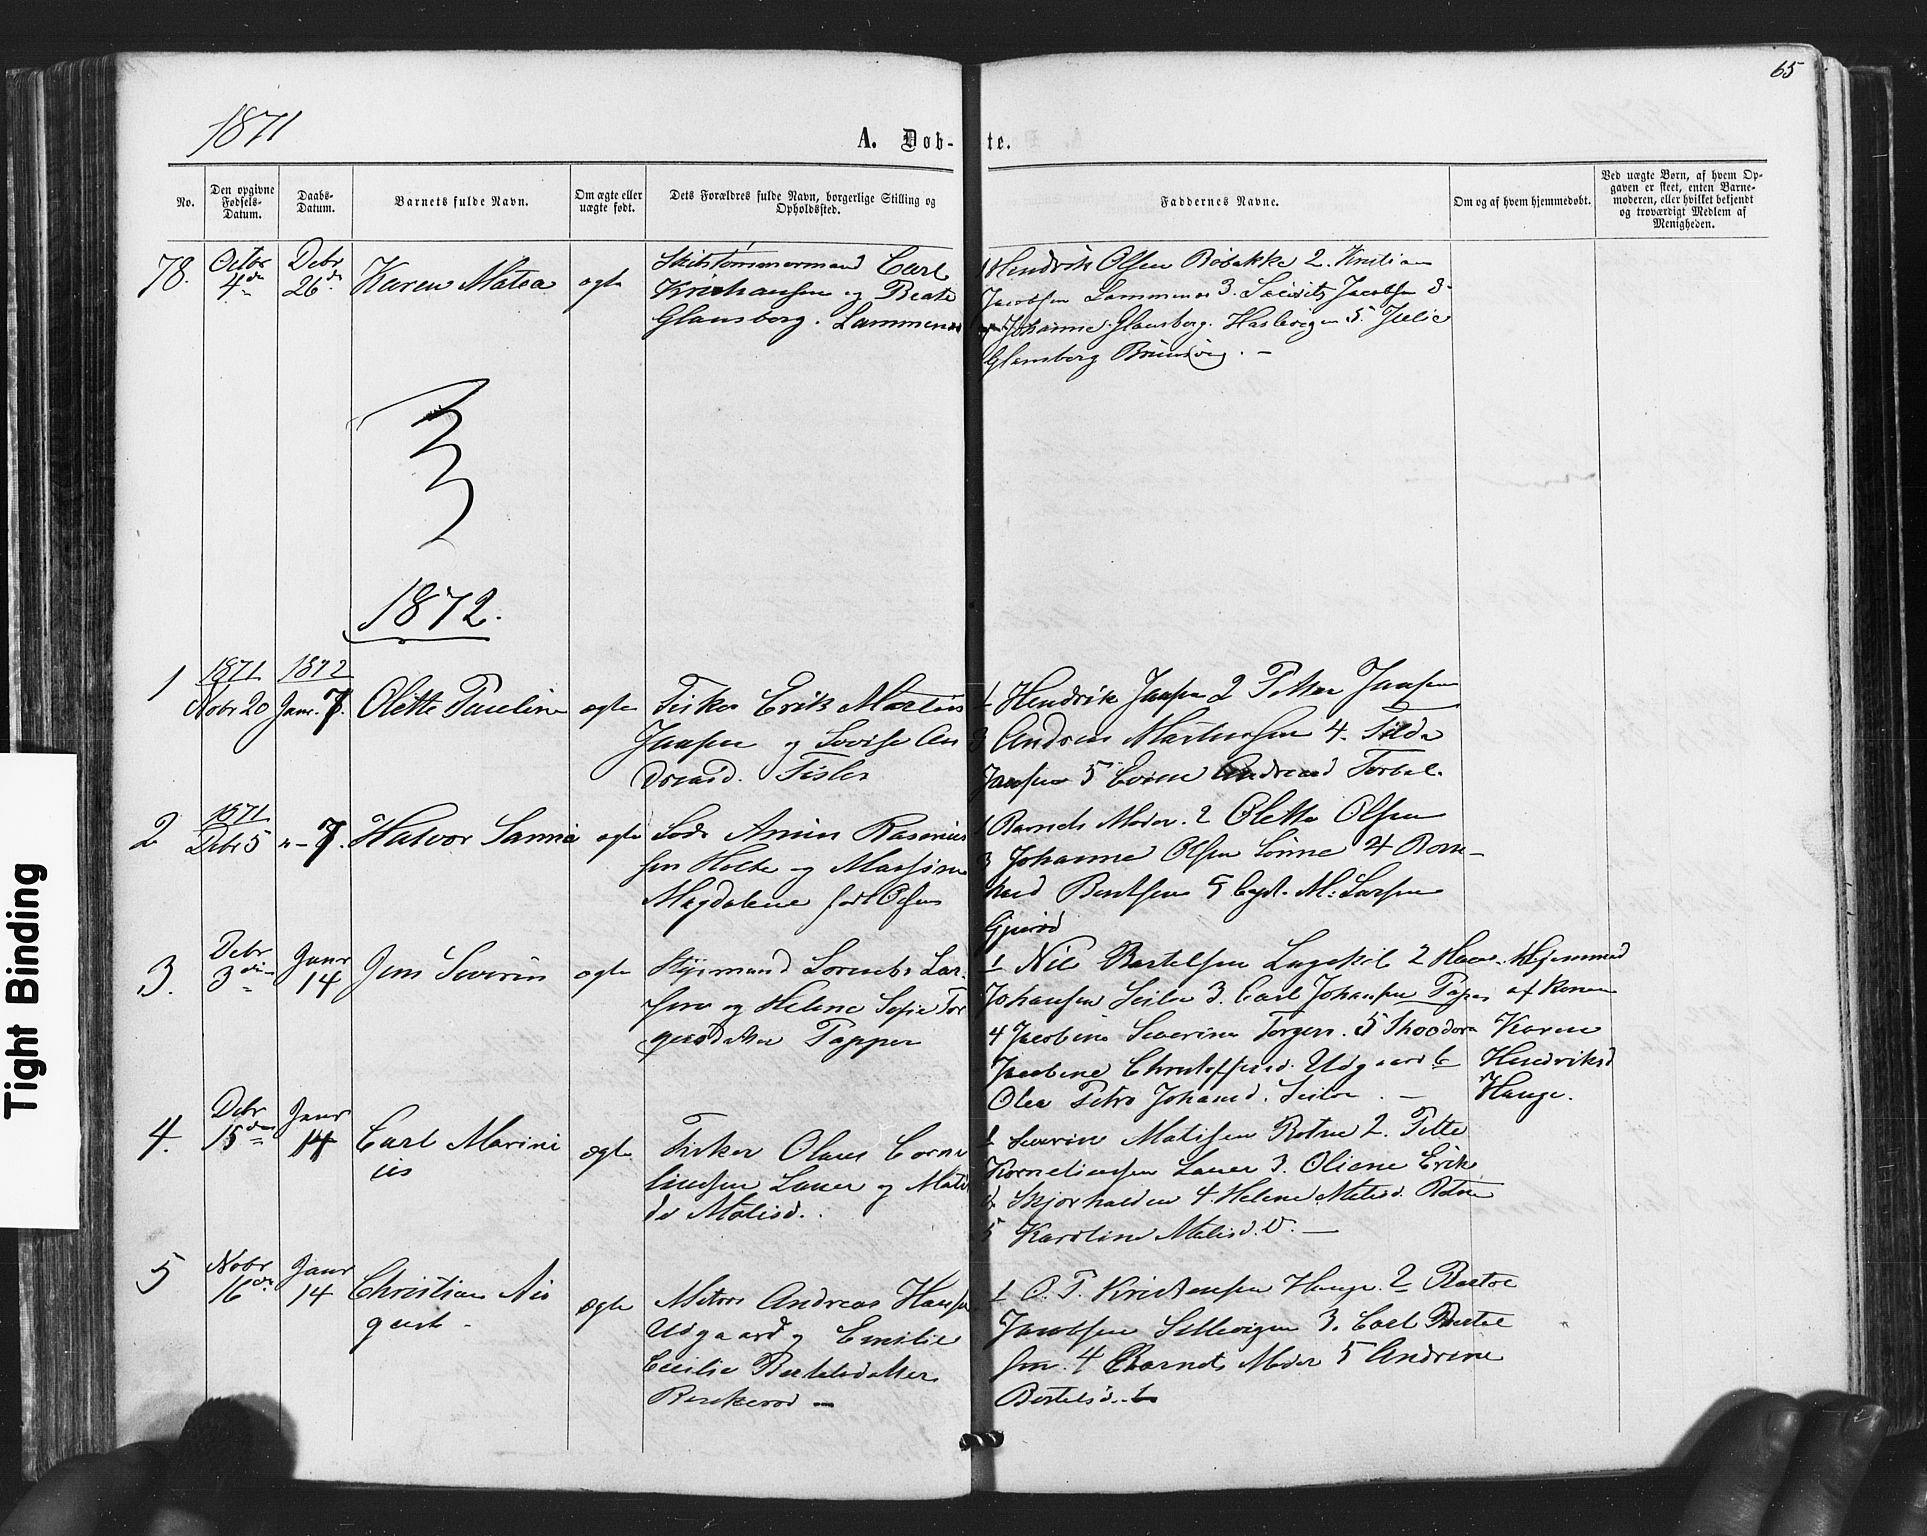 65
1871
A. Døb-
te.
No.
Den opgivne Fødsels-Datum.
Daabs-Datum.
Barnets fulde Navn.
Om ægte eller uægte født.
Dets Forældres fulde Navn, borgerlige Stilling og Opholdssted.
Faddernes Navne.
Om og af hvem hjemmedøbt.
Ved uægte Børn, af hvem Opgaven er skeet, enten Barnemoderen, eller hvilket bekjendt og troværdigt Medlem af Menigheden.
78.
Octbr 4de
Debr 26de
Karen Matea
ægte
Skibstømmermand Carl
Krishansen og Beate
Glansborg. Lammenes
1 Hendrik Olsen Røbakke 2. Kristian
Jacobsen Lammenes 3. Jacobsen
Johanne Glansborg. Haslevigen 5. Julie
Glansborg
1872.
1
1871
Nobr 20
1872
Janr. 7.
Olette Pauline
ægte
Fisker Erik Martin
Jansen og Lovise An
dreasd. Fisler
1 Hendrik Jansen 2 Petter Jansen
3 Andreas Martinsen 4.
Jansen 5 Andreasd
2
1871
Debr 5
"- 7.
Halvor Samie
ægte
Lods Anton Rasmus
sen Holte og
Magdalene født Olsen
1 Barnets Moder. 2 Olette Olsen
3 Johanne Olsen 4 Born-
hard Bentsen 5 M: Larsen
3.
Debr 3die
Janr 14
Jens Severin
ægte
Styrmand Lorents Lar-
sen og Helene Sofie Tor
gersdatter Papper
1 Nils Bertelsen 2 Hans
Johansen Seilø 3. Carl Johansen Papper
4 Jacobine Severine Torgers. 5 Theodora
Jacobine Christoffersd. Udgaard 6
Olea Petra Johansd. Seilø. -
Hjemmed
af Konen
Karen
Hendriksd
Hauge.
4.
Debr 15de
Janr 14
Carl Marini
us
ægte
Fisker Olaus Corne
liussen Lauer og Matil
de Matisd.
1 Severin Matisen 2. Pette
Korneliussen Lauer 3. Oliane Eriks
d. Skjærhalden 4. Helene Matisd.
5 Karoline Matisd. D. -
5
Nobr 16de
Janr 14
Christian Au
gust -
ægte
Matros Andreas Hansen
Udgaard og Emilie
Cecilie Bertelsdatter
1 O. P. Kristensen Hauge. 2
Jacobsen 3. Carl Bertel
sen. 4 Barnets Moder 5 Andrine
Bertelsd.
Tight Binding